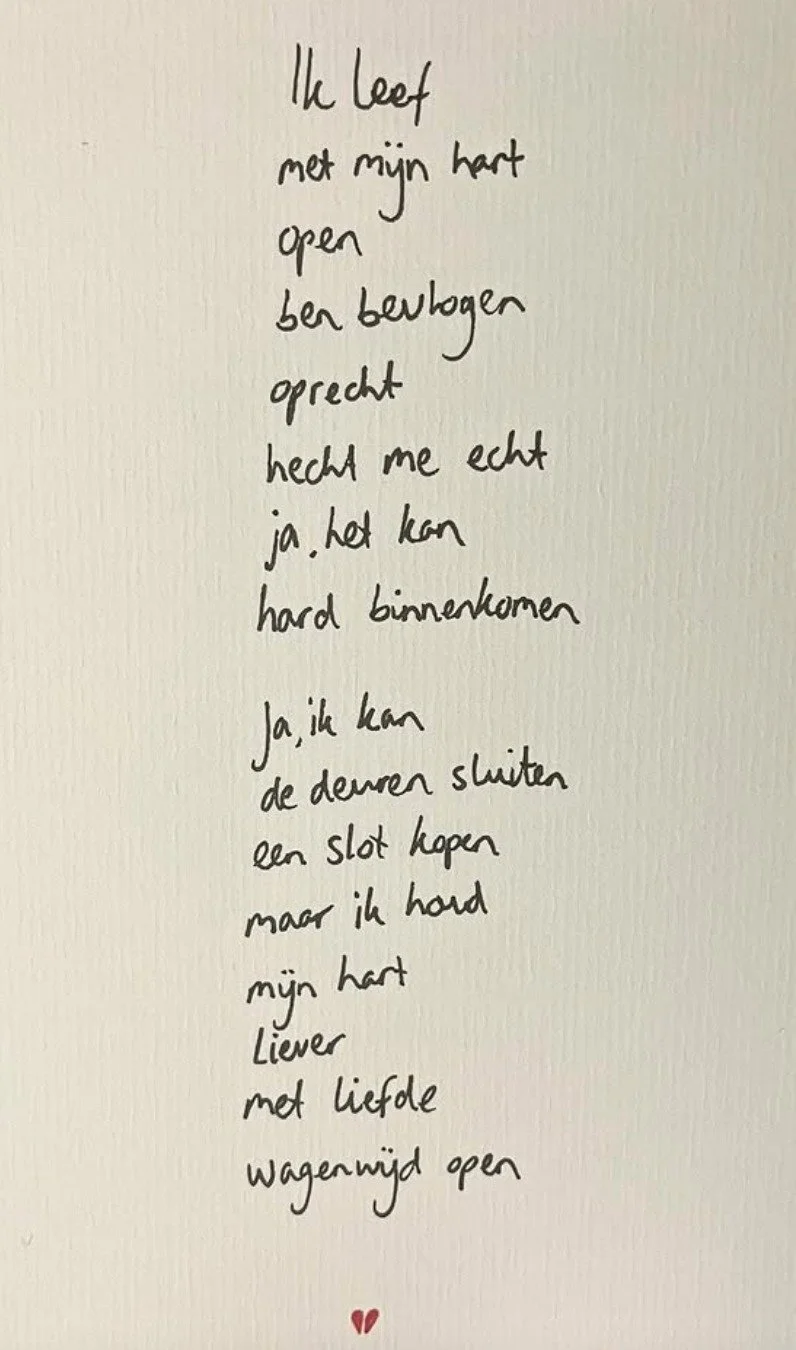 Ik leef
met mijn hart
open
ben bevlogen
oprecht
hecht me echt
ja, het kan
hard binnenkomen
Ja, ik kan
de deuren sluiten
een slot kopen
maar ik houd
mijn hart
liever
met liefde
wagenwijd open